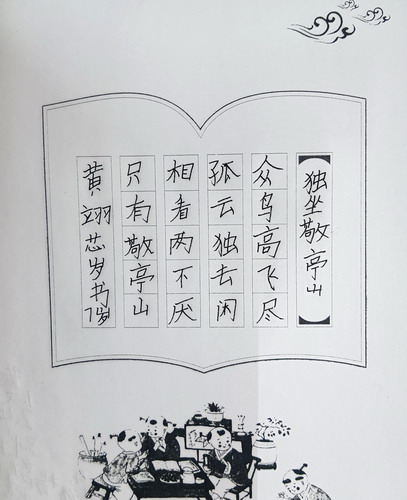 独坐敬亭山
众鸟高飞尽
孤云独去闲
相看两不厌
只有敬亭山
黄翊芯岁书7岁